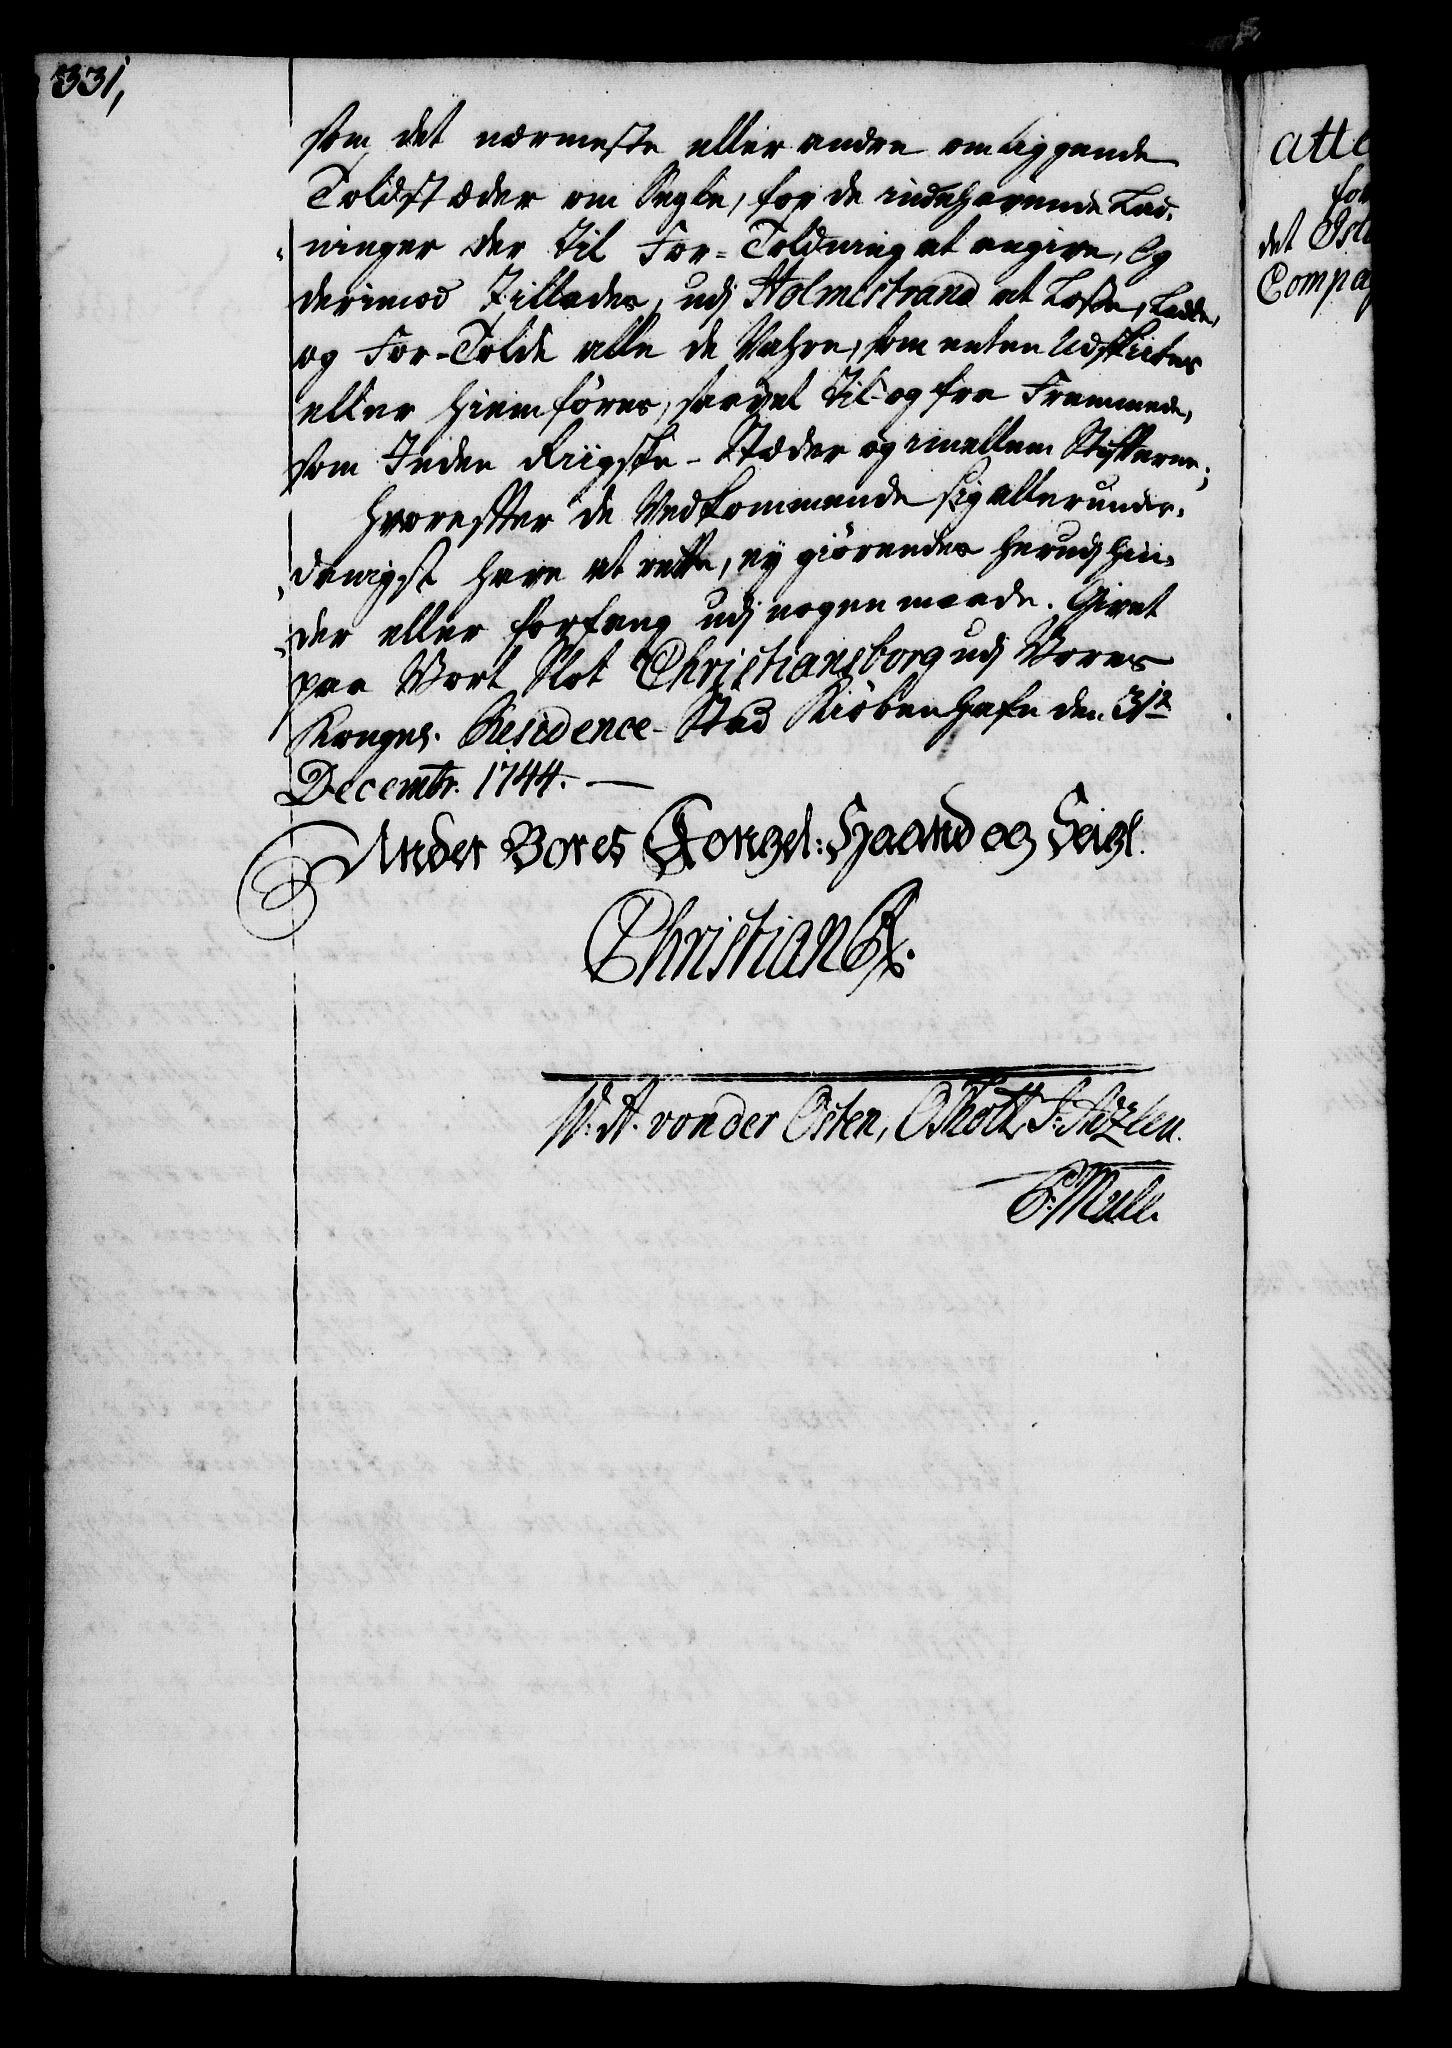 331,
som det nærmeste eller andre omliggende
Toldstæder om Segle, for de indehavende Lad,
ninger der til For-Toldning at angive, og
derimod tillades, udj Holmestrand at Losse, Lade,
og For-Tolde alle de Vahre, som enten Udskibes
eller hiemføres, saavel til og fra Fremmede,
som Inden Riigske-Stæder og imellem Stifterne;
Hvorefter de Vedkommende sig allerunder,
danigst have at rette, ej giørendes herudj Hin,
der eller forfang udj nogen maade. Givet
paa Vort Slot Christiansborg udj Vores
Kongel. Residence-Stad Kiøbenhafn den 31te
Decembr. 1744.
Under Vores Kongel: Haand og Seigl.
Christian R.
W: A. von der Osten, O Thott, F: Holzlen.
P: Mule.
atte
for
det Isl
Compag